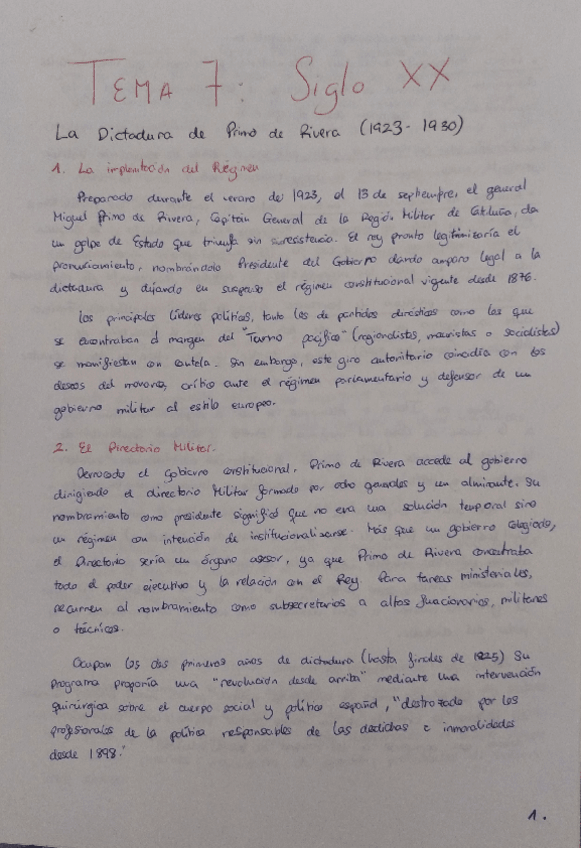 TEMA 7: Siglo XX
La Dictadura de Primo de Rivera (1923-1930)
1. La implantación del Régimen
Preparado durante el verano de 1923, el 13 de septiembre, el general
Miguel Primo de Rivera, Capitán General de la Región Militar de Cataluña, da
un golpe de Estado que triunfa sin resistencia. El rey pronto legitimizaría el
pronunciamiento, nombrándolo Presidente del Gobierno dando amparo legal a la
dictadura y dejando en suspenso el régimen constitucional vigente desde 1876.
Los principales líderes políticos, tanto los de partidos dinásticos como los que
se encontraban al margen del "Turno pacífico" (regionalistas, mauristas o socialistas)
se manifiestan con cautela. Sin embargo, este giro autoritario coincidía con los
deseos del monarca, crítico ante el régimen parlamentario y defensor de un
gobierno militar al estilo europeo.
2. El Directorio Militar.
Derrocado el gobierno constitucional, Primo de Rivera accede al gobierno
dirigiendo el directorio Militar formado por ocho generales y un almirante. Su
nombramiento como presidente significó que no era una solución temporal sino
un régimen con intención de institucionalizarse. Más que un gobierno colegiado,
el Directorio sería un órgano asesor, ya que Primo de Rivera concentraba
todo el poder ejecutivo y la relación con el Rey. Para tareas ministeriales,
recurren al nombramiento como subsecretarios a altos funcionarios, militares
o técnicos.
Ocupan los dos primeros años de dictadura (hasta finales de 1925) Su
programa proponía una "revolución desde arriba" mediante una intervención
quirúrgica sobre el cuerpo social y político español, "destrozado por los
profesionales de la política responsables de las desdichas e inmoralidades
desde 1898."
1.